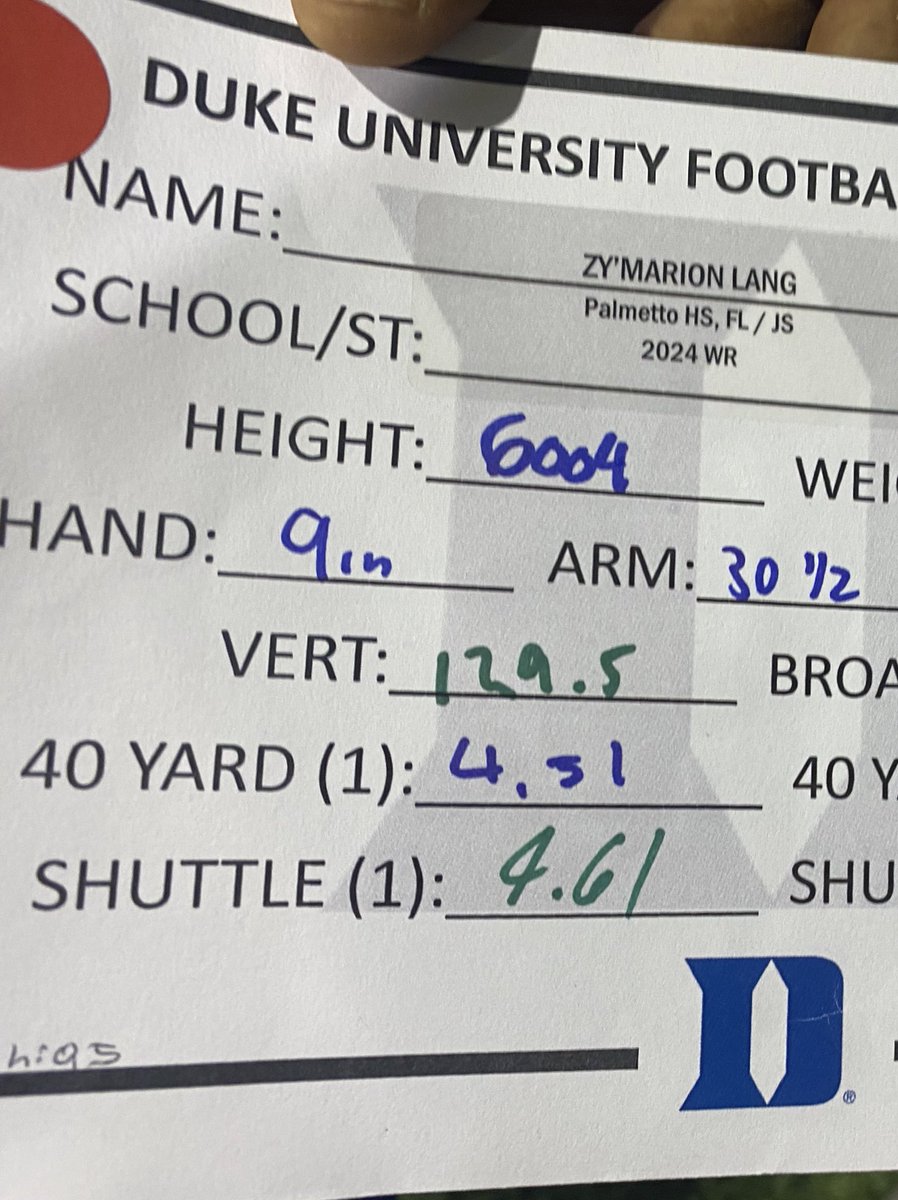 DUKE UNIVERSITY FOOTBA
NAME: ZY'MARION LANG
SCHOOL/ST: Palmetto HS, FL / JS
2024 WR
HEIGHT: 6004 WEI
HAND: 9in ARM: 30 1/2
VERT: 129.5 BROA
40 YARD (1): 4.51 40 Y
SHUTTLE (1): 4.61 SHU
D
®